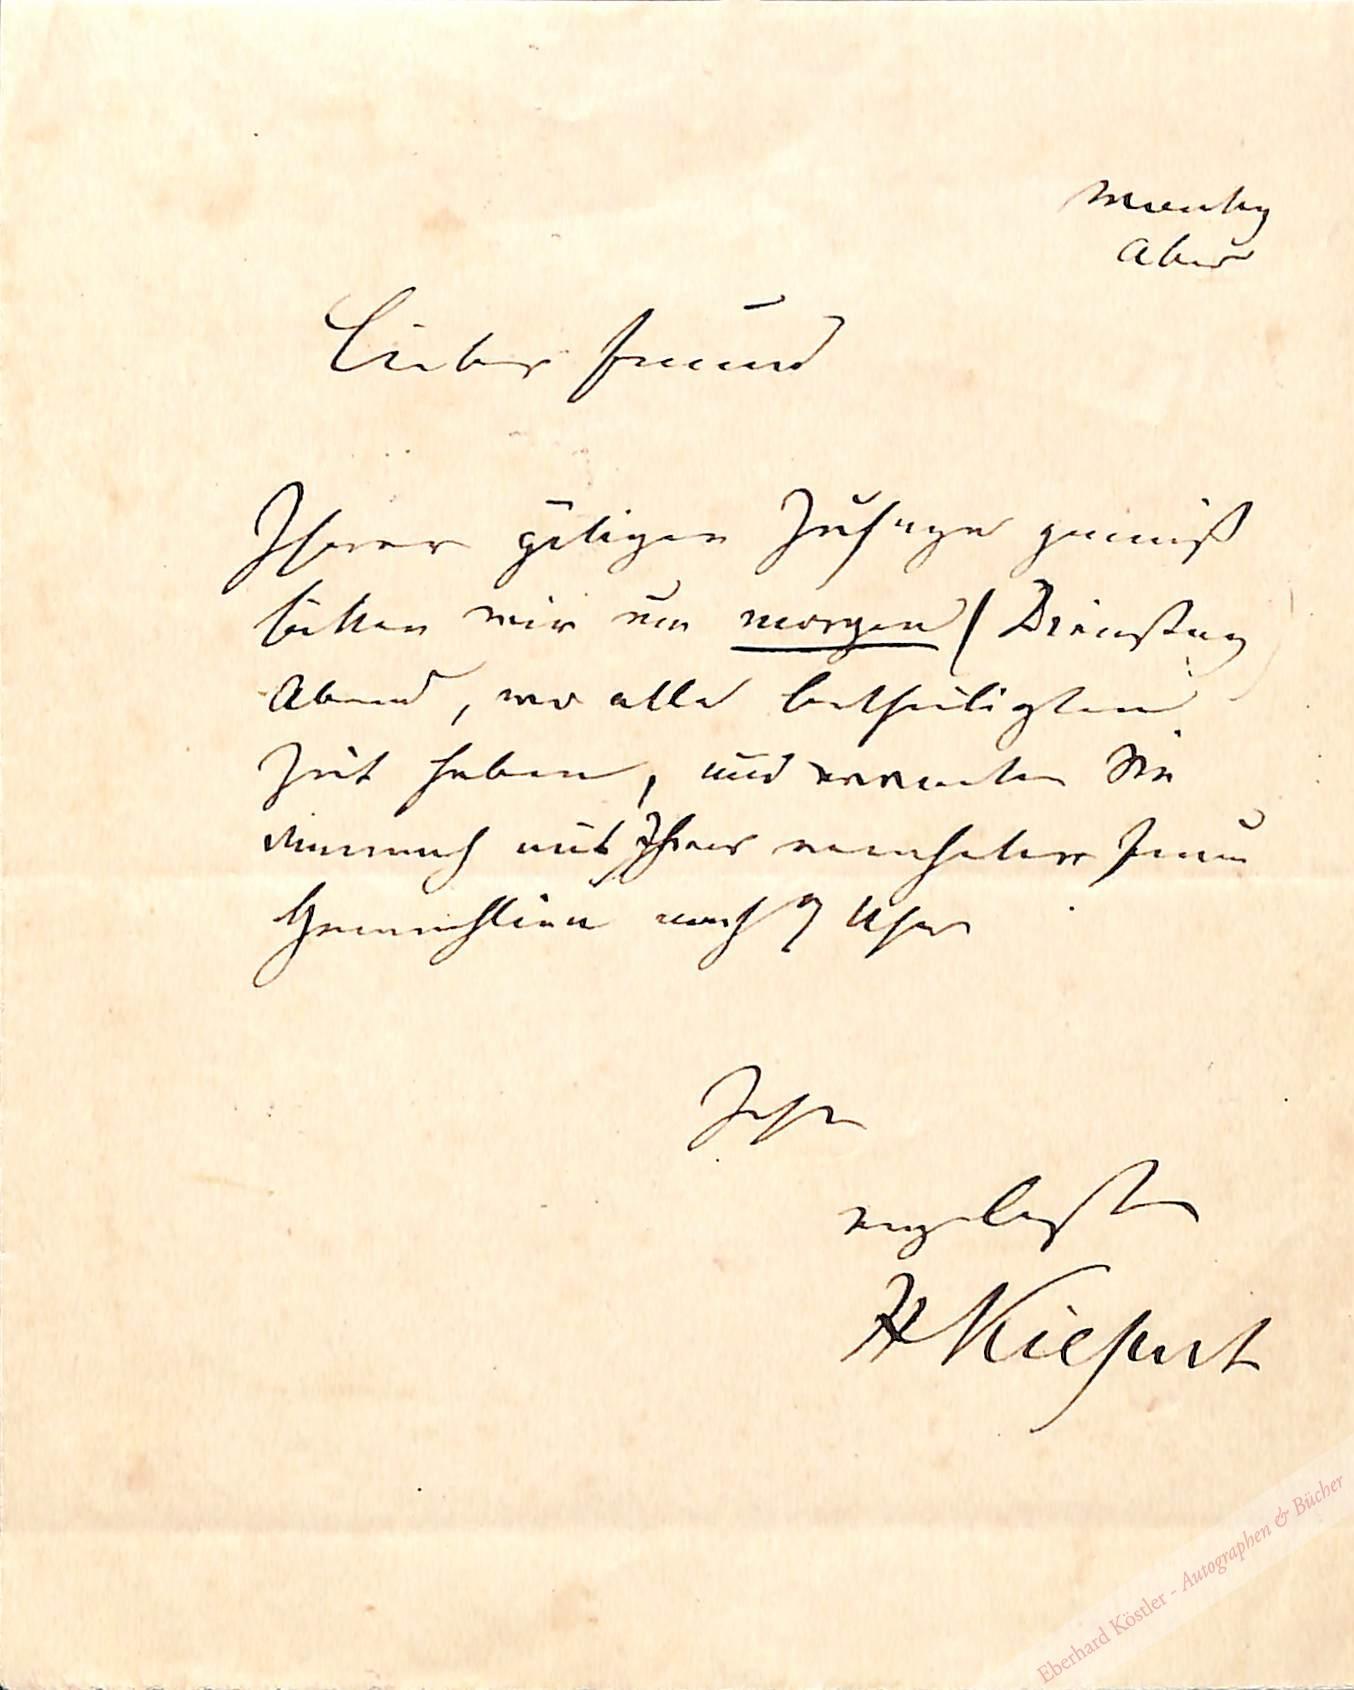 Montag
Abend
Lieber Freund
Ihrer gütigen Zusage gemäß
bitten wir um morgen (Dienstag
Abend, wo alle betheiligten
Zeit haben, und erwarten Sie
demnach mit Ihrer verehrten Frau
Gemahlin nach 7 Uhr
Ihr
ergebenster
HKiepert
Eberhard Köstler - Autographen & Bücher